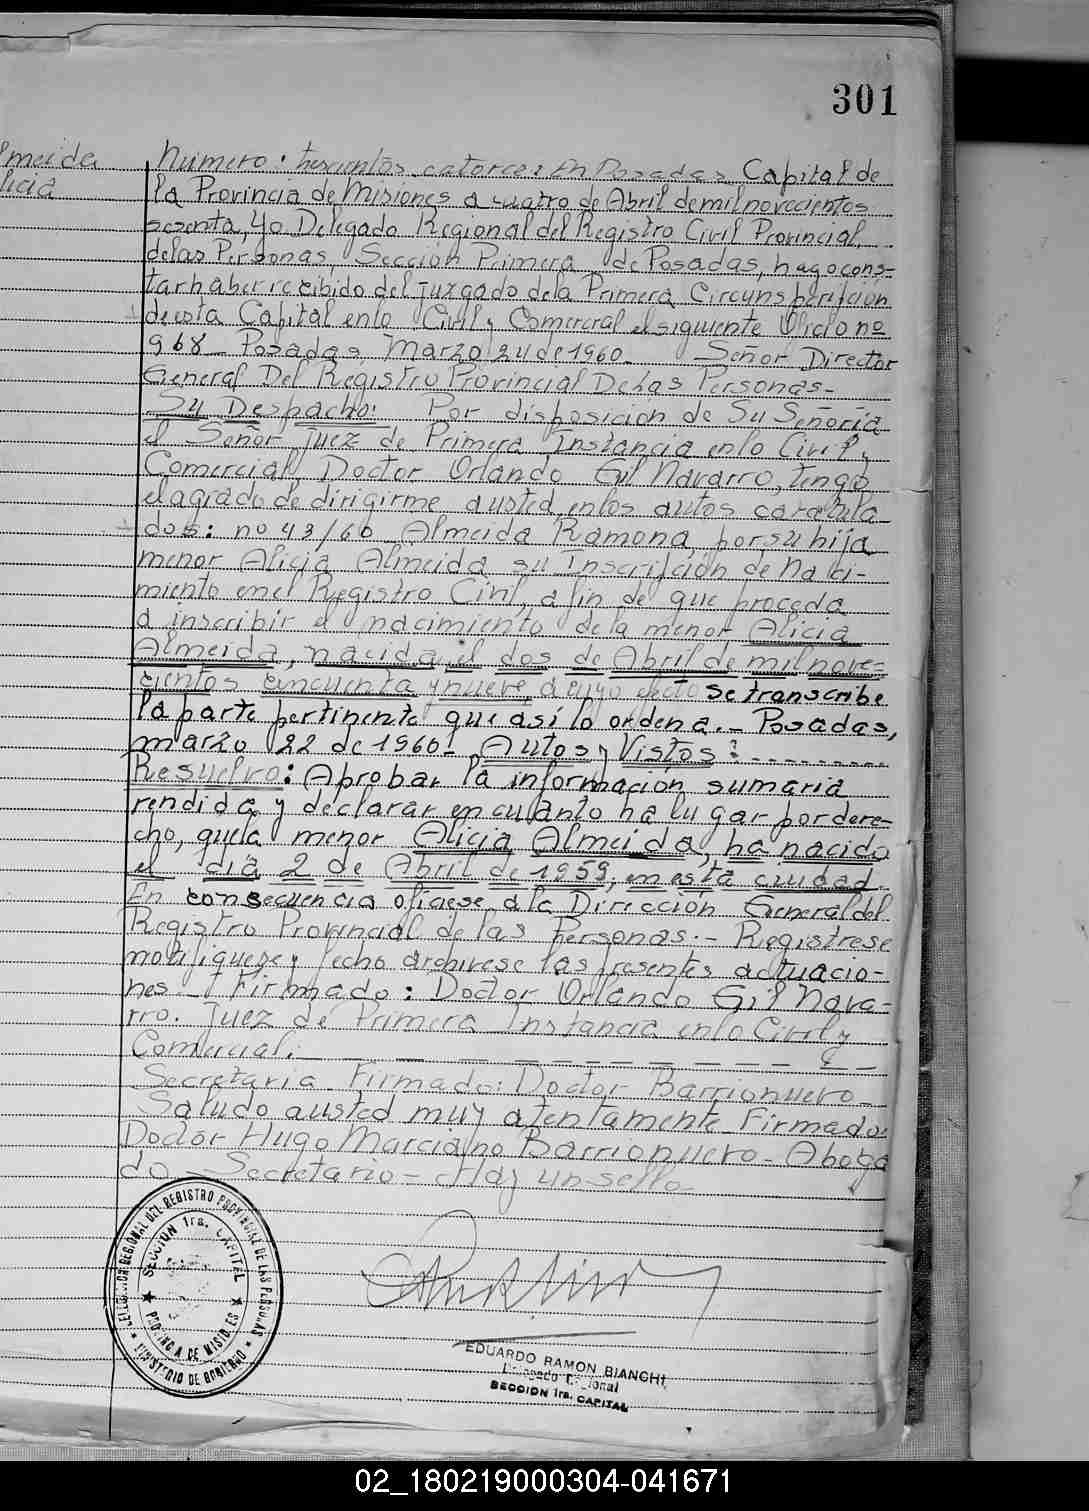 301
lmeida
licia
Numero: trescientos catorce: En Posadas Capital de
la Provincia de Misiones a cuatro de Abril de mil novecientos
sesenta, Yo Delegado Regional del Registro Civil Provincial,
de las Personas, Sección Primera de Posadas, hago cons=
tar haber recibido del juzgado de la Primera Circunscripcion
de esta Capital en lo Civil y Comercial el siguiente Oficio no
968- Posadas Marzo 24 de 1960- Señor Director
General Del Registro Provincial De Las Personas-
Su Despacho: Por disposicion de Su Señoria
el Señor juez de Primera Instancia en lo Civil y
Comercial Doctor Orlando Gil Navarro, tengo
el agrado de dirigirme a usted en los autos caratula
dos: no 43/60 Almeida Ramona por su hija
menor Alicia Almeida su Inscripción de Naci-
miento en el Registro Civil, a fin de que proceda
a inscribir el nacimiento de la menor Alicia
Almeida, nacida el dos de Abril de mil nove=
cientos cincuenta y nueve, a cuyo efecto se transcribe
la parte pertinente que así lo ordena.- Posadas,
marzo 22 de 1960- Autos y Vistos:
Resuelvo: Aprobar la información sumaria
rendida y declarar en cuanto ha lugar por dere=
cho, que la menor Alicia Almeida, ha nacido
el día 2 de Abril de 1959, en esta ciudad.
En consecuencia ofíciese a la Dirección General del
Registro Provincial de las Personas.- Registrese
notifiquese y fecho archivese las presentes actuacio-
nes- Firmado: Doctor Orlando Gil Nava=
rro. Juez de Primera Instancia en lo Civil y
Comercial.
Secretaria. Firmado: Doctor Barrionuevo
Saludo a usted muy atentamente Firmado:
Doctor Hugo Marciano Barrionuevo- Aboga
do- Secretario- Hay un sello-
DELEGACION REGIONAL DEL REGISTRO PROVINCIAL DE LAS PERSONAS
SECCION 1ra. CAPITAL
PROVINCIA DE MISIONES
MINISTERIO DE GOBIERNO
EDUARDO RAMON BIANCHI
Delegado Regional
SECCION 1ra. CAPITAL
02_180219000304-041671